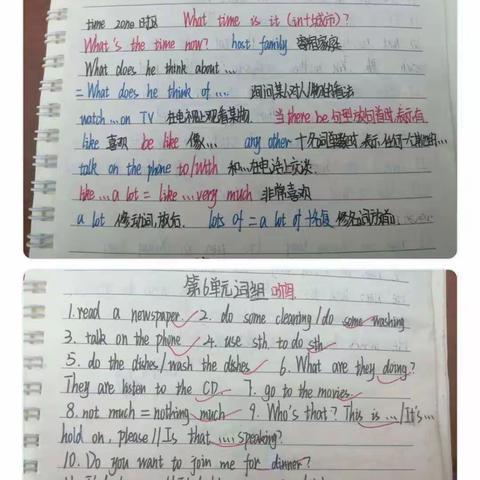 time zone 时区 What time is it (in+城市)?
What's the time now? host family 寄宿家庭
What does he think about ...
= What does he think of .... 询问某人对人/物的看法
watch ... on TV 在电视上观看某物. 当there be句型放句首时,表示有
like 喜欢 be like 像... any other + 名词单数时,表示
talk on the phone to/with 和...在电话上交谈
like ... a lot = like ... very much 非常喜欢
a lot 修动词,放后. lots of = a lot of + 修名词放前.
第6单元词组
1. read a newspaper 2. do some cleaning / do some washing
3. talk on the phone 4. use sth. to do sth
5. do the dishes / wash the dishes 6. What are they doing?
They are listen to the CD. 7. go to the movies
8. not much = nothing much 9. Who's that? This is ... / It's ...
hold on, please // Is that .... speaking?
10. Do you want to join me for dinner?